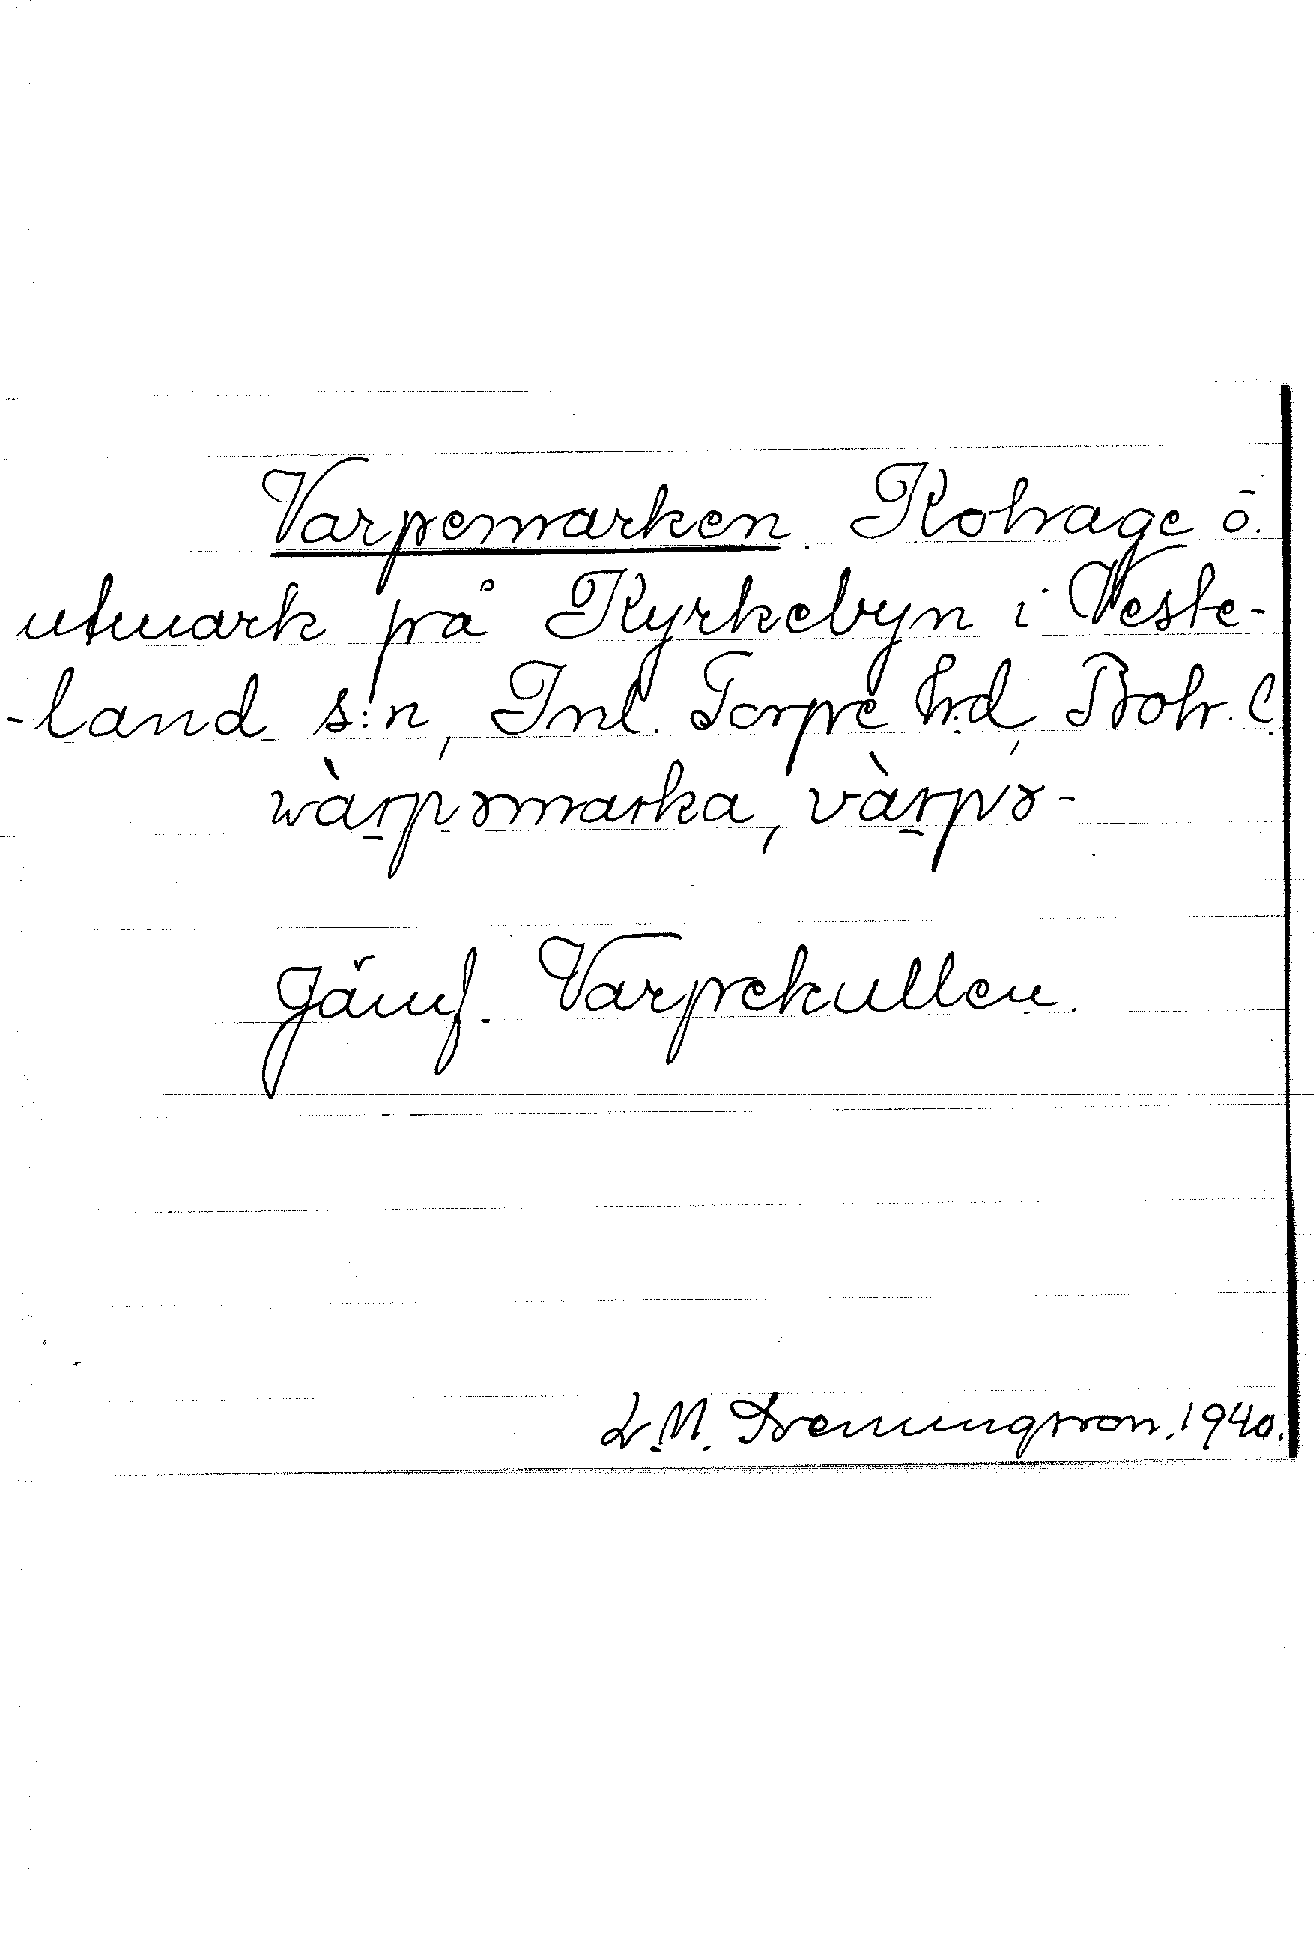 Varpemarken. Kohage o.
utmark på Kyrkebyn i Veste-
-land s:n, Inl. Torpe hd, Boh. l.
wàrpəmarka, vàrpə-
Jämf. Varpekullen.
L.M. Svenungsson. 1940.